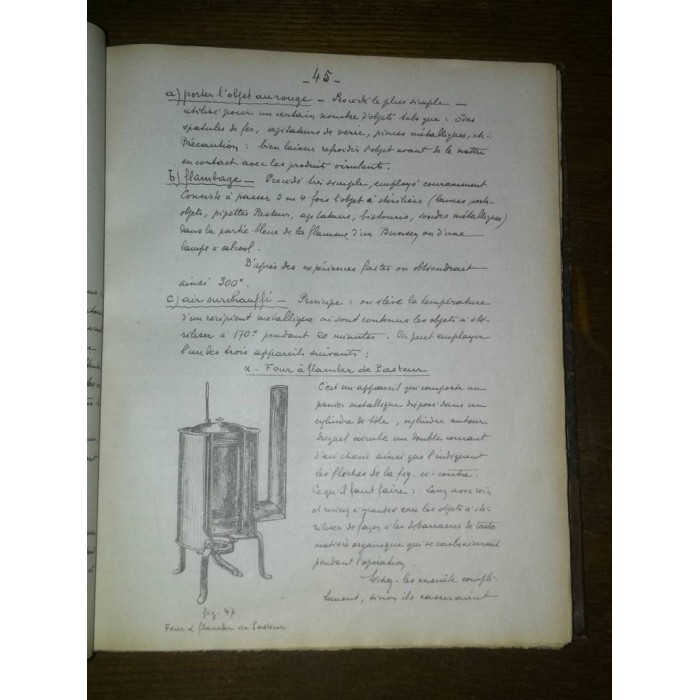 - 45 -
a) porter l'objet au rouge - Procédé le plus simple -
utilisé pour un certain nombre d'objets tels que :
spatules de fer, agitateurs de verre, pinces métalliques, etc.
Précaution : bien laisser refroidir l'objet avant de le mettre
en contact avec les produits virulents.
b) flambage - Procédé très simple, employé couramment
Consiste à passer 3 ou 4 fois l'objet à stériliser (lames porte-
objets, pipettes Pasteur, agitateurs, bistouris, sondes métalliques)
dans la partie bleue de la flamme d'un Bunsen ou d'une
lampe à alcool.
D'après des expériences faites on obtiendrait
ainsi 300°.
c) air surchauffé - Principe : on élève la température
d'un récipient métallique où sont contenus les objets à sté-
riliser à 170° pendant 20 minutes. On peut employer
l'un des trois appareils suivants :
α - Four à flamber de Pasteur
C'est un appareil qui comporte un
panier métallique disposé dans un
cylindre de tôle, cylindre autour
duquel circule un double courant
d'air chaud ainsi que l'indiquent
les flèches de la fig. ci-contre.
Ce qu'il faut faire : avec soin
et rincez à grande eau les objets à sté-
riliser de façon à les débarrasser de toute
matière organique qui se carboniserait
pendant l'opération.
les ensuite complè-
tement, sinon ils casseraient
fig. 47
Four à flamber de Pasteur